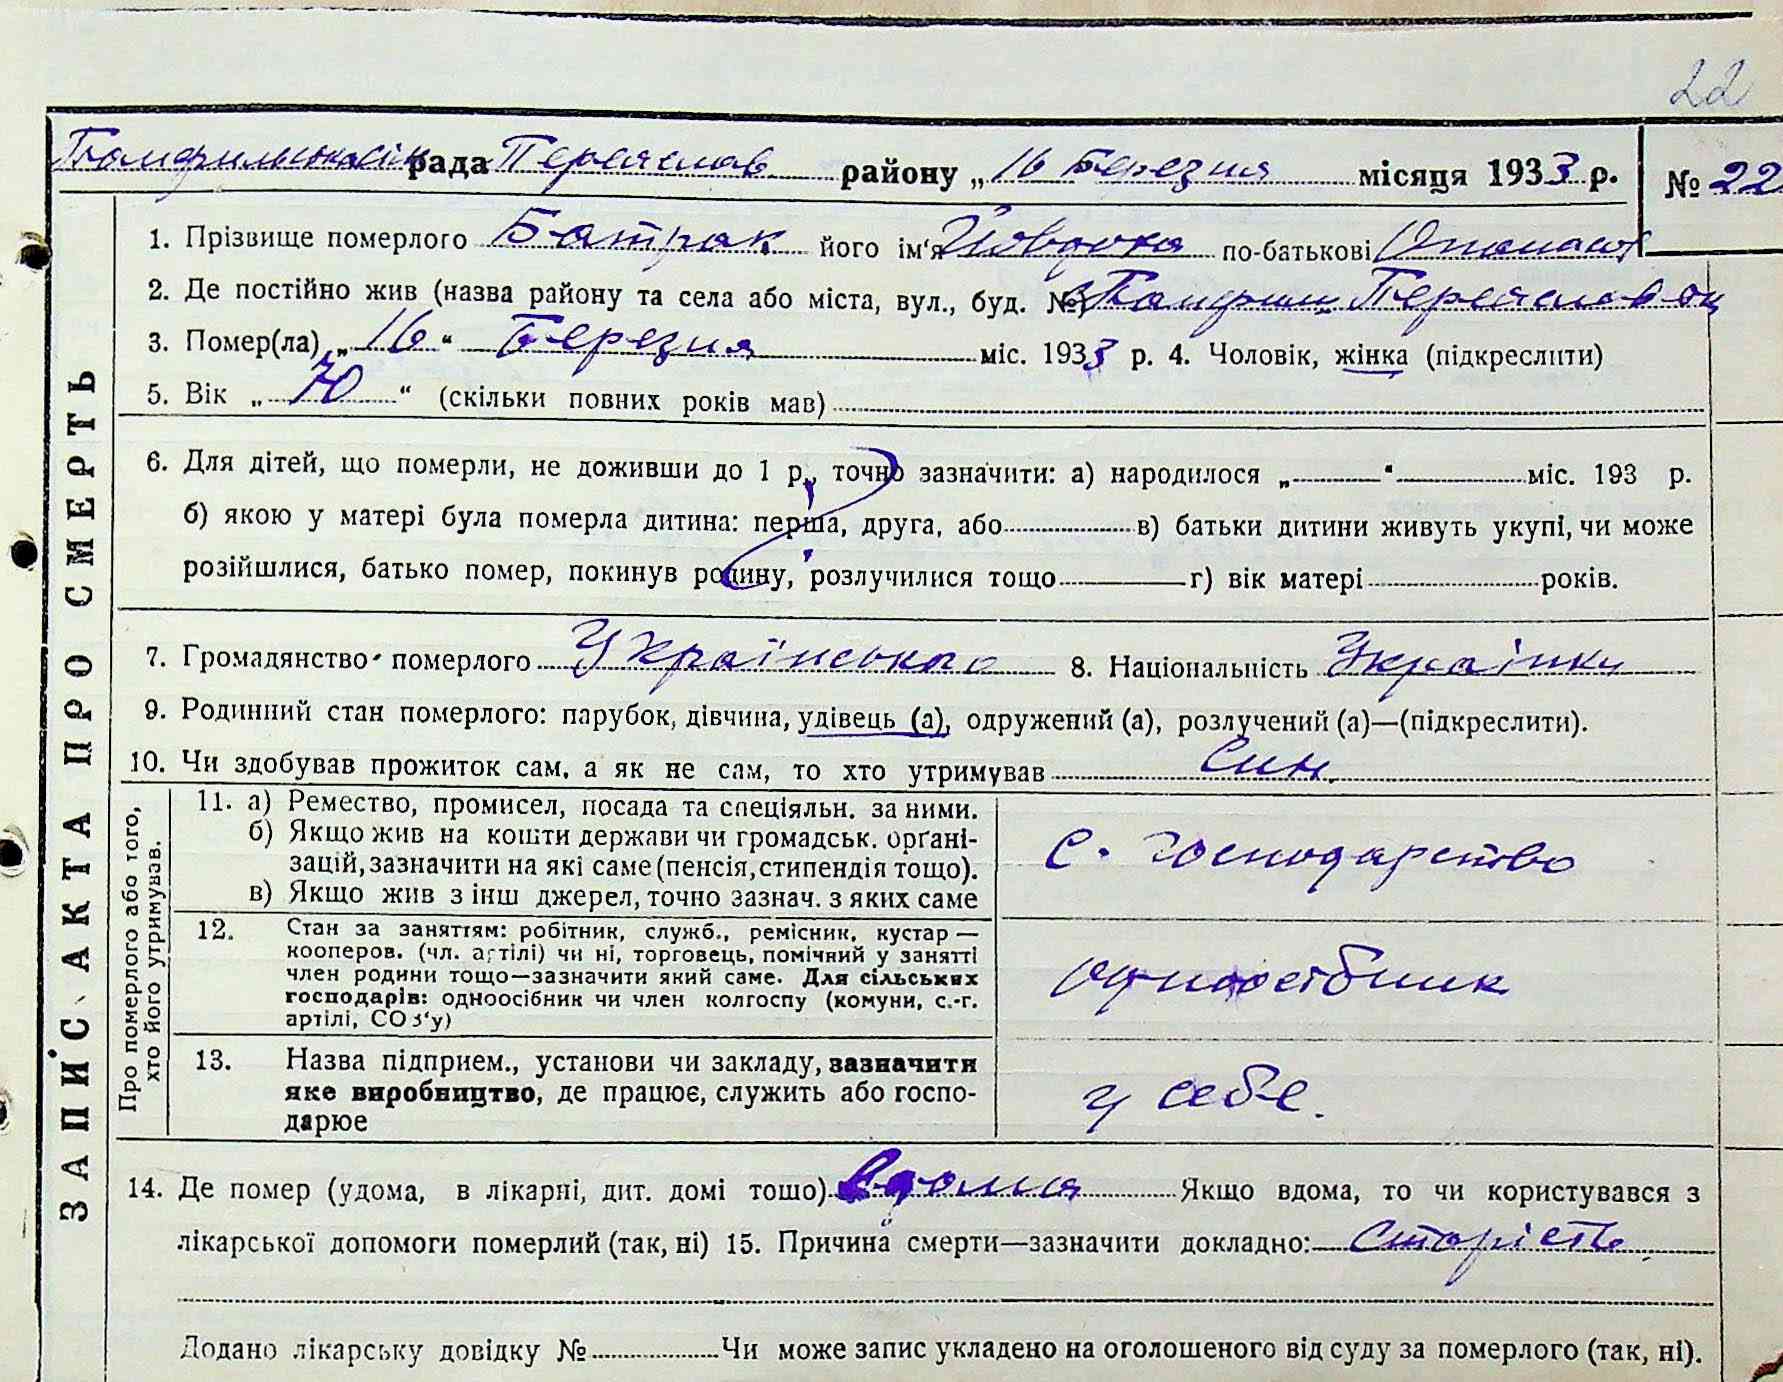 22
рада Переяслав району „16 Березня місяця 1933 р. № 22
1. Прізвище померлого Батрак його ім'я Йовдоха по-батькові
2. Де постійно жив (назва району та села або міста, вул., буд. №
3. Помер(ла) „16“ Березня міс. 1933 р. 4. Чоловік, жінка (підкреслити)
5. Вік „70“ (скільки повних років мав)
6. Для дітей, що померли, не доживши до 1 р., точно зазначити: а) народилося „ “ міс. 193 р.
б) якою у матері була померла дитина: перша, друга, або в) батьки дитини живуть укупі, чи може
розійшлися, батько помер, покинув родину, розлучилися тощо г) вік матері років.
7. Громадянство померлого Українського 8. Національність Українка
9. Родинний стан померлого: парубок, дівчина, удівець (а), одружений (а), розлучений (а)—(підкреслити).
10. Чи здобував прожиток сам, а як не сам, то хто утримував Син.
ЗАПИС АКТА ПРО СМЕРТЬ
Про померлого або того,
хто його утримував.
11. а) Ремество, промисел, посада та спеціяльн. за ними.
б) Якщо жив на кошти держави чи громадськ. органі-
зацій, зазначити на які саме (пенсія, стипендія тощо).
в) Якщо жив з інш джерел, точно зазнач. з яких саме
С. господарство
12. Стан за заняттям: робітник, служб., ремісник, кустар —
кооперов. (чл. артілі) чи ні, торговець, помічний у занятті
член родини тощо—зазначити який саме. Для сільських
господарів: одноосібник чи член колгоспу (комуни, с.-г.
артілі, СОЗ'у)
одноосібник
13. Назва підприєм., установи чи закладу, зазначити
яке виробництво, де працює, служить або госпо-
дарює
у себе.
14. Де помер (удома, в лікарні, дит. домі тощо) Вдома Якщо вдома, то чи користувався з
лікарської допомоги померлий (так, ні) 15. Причина смерти—зазначити докладно: Старість
Додано лікарську довідку № Чи може запис укладено на оголошеного від суду за померлого (так, ні).